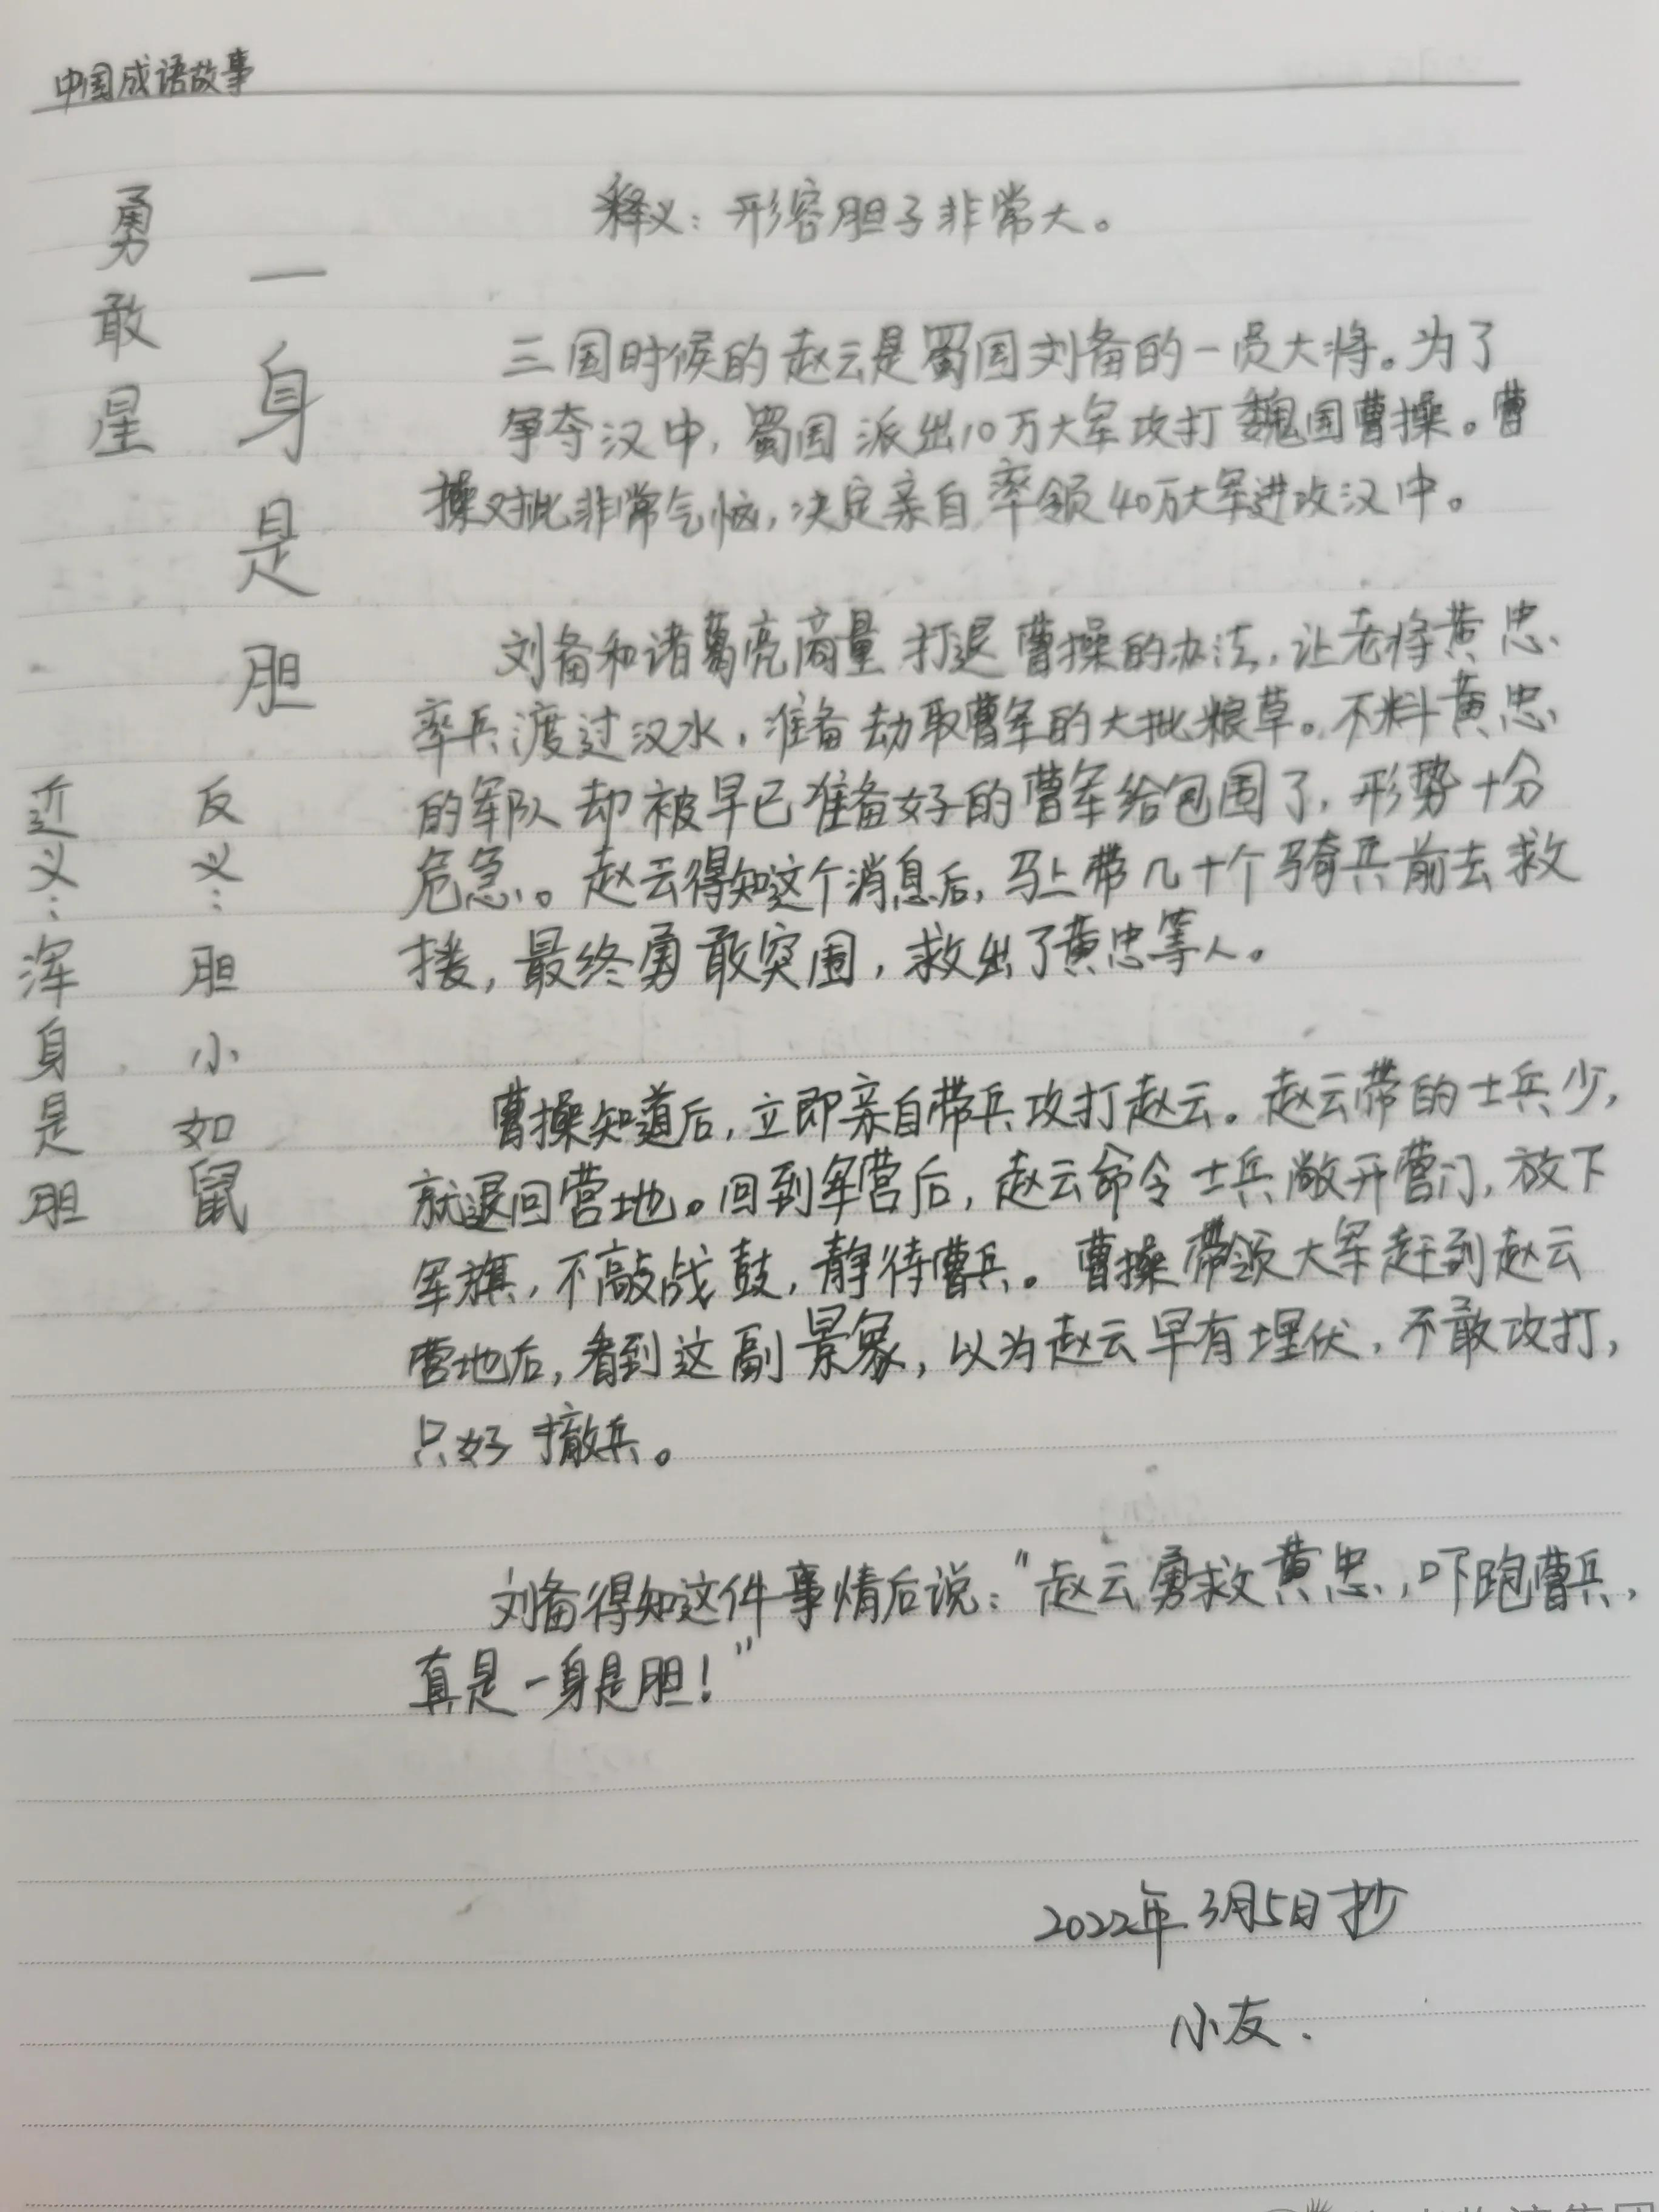 中国成语故事
勇敢星
一身是胆
近义:浑身是胆
反义:胆小如鼠
释义:形容胆子非常大。
三国时候的赵云是蜀国刘备的一员大将。为了
争夺汉中,蜀国派出10万大军攻打魏国曹操。曹
操对此非常气恼,决定亲自率领40万大军进攻汉中。
刘备和诸葛亮商量打退曹操的办法,让老将黄忠
率兵渡过汉水,准备劫取曹军的大批粮草。不料黄忠
的军队却被早已准备好的曹军给包围了,形势十分
危急。赵云得知这个消息后,马上带几十个骑兵前去救
援,最终勇敢突围,救出了黄忠等人。
曹操知道后,立即亲自带兵攻打赵云。赵云带的士兵少,
就退回营地。回到军营后,赵云命令士兵敞开营门,放下
军旗,不敲战鼓,静待曹兵。曹操带领大军赶到赵云
营地后,看到这副景象,以为赵云早有埋伏,不敢攻打,
只好撤兵。
刘备得知这件事情后说:"赵云勇救黄忠,吓跑曹兵,
真是一身是胆!"
2022年3月5日抄
小友.